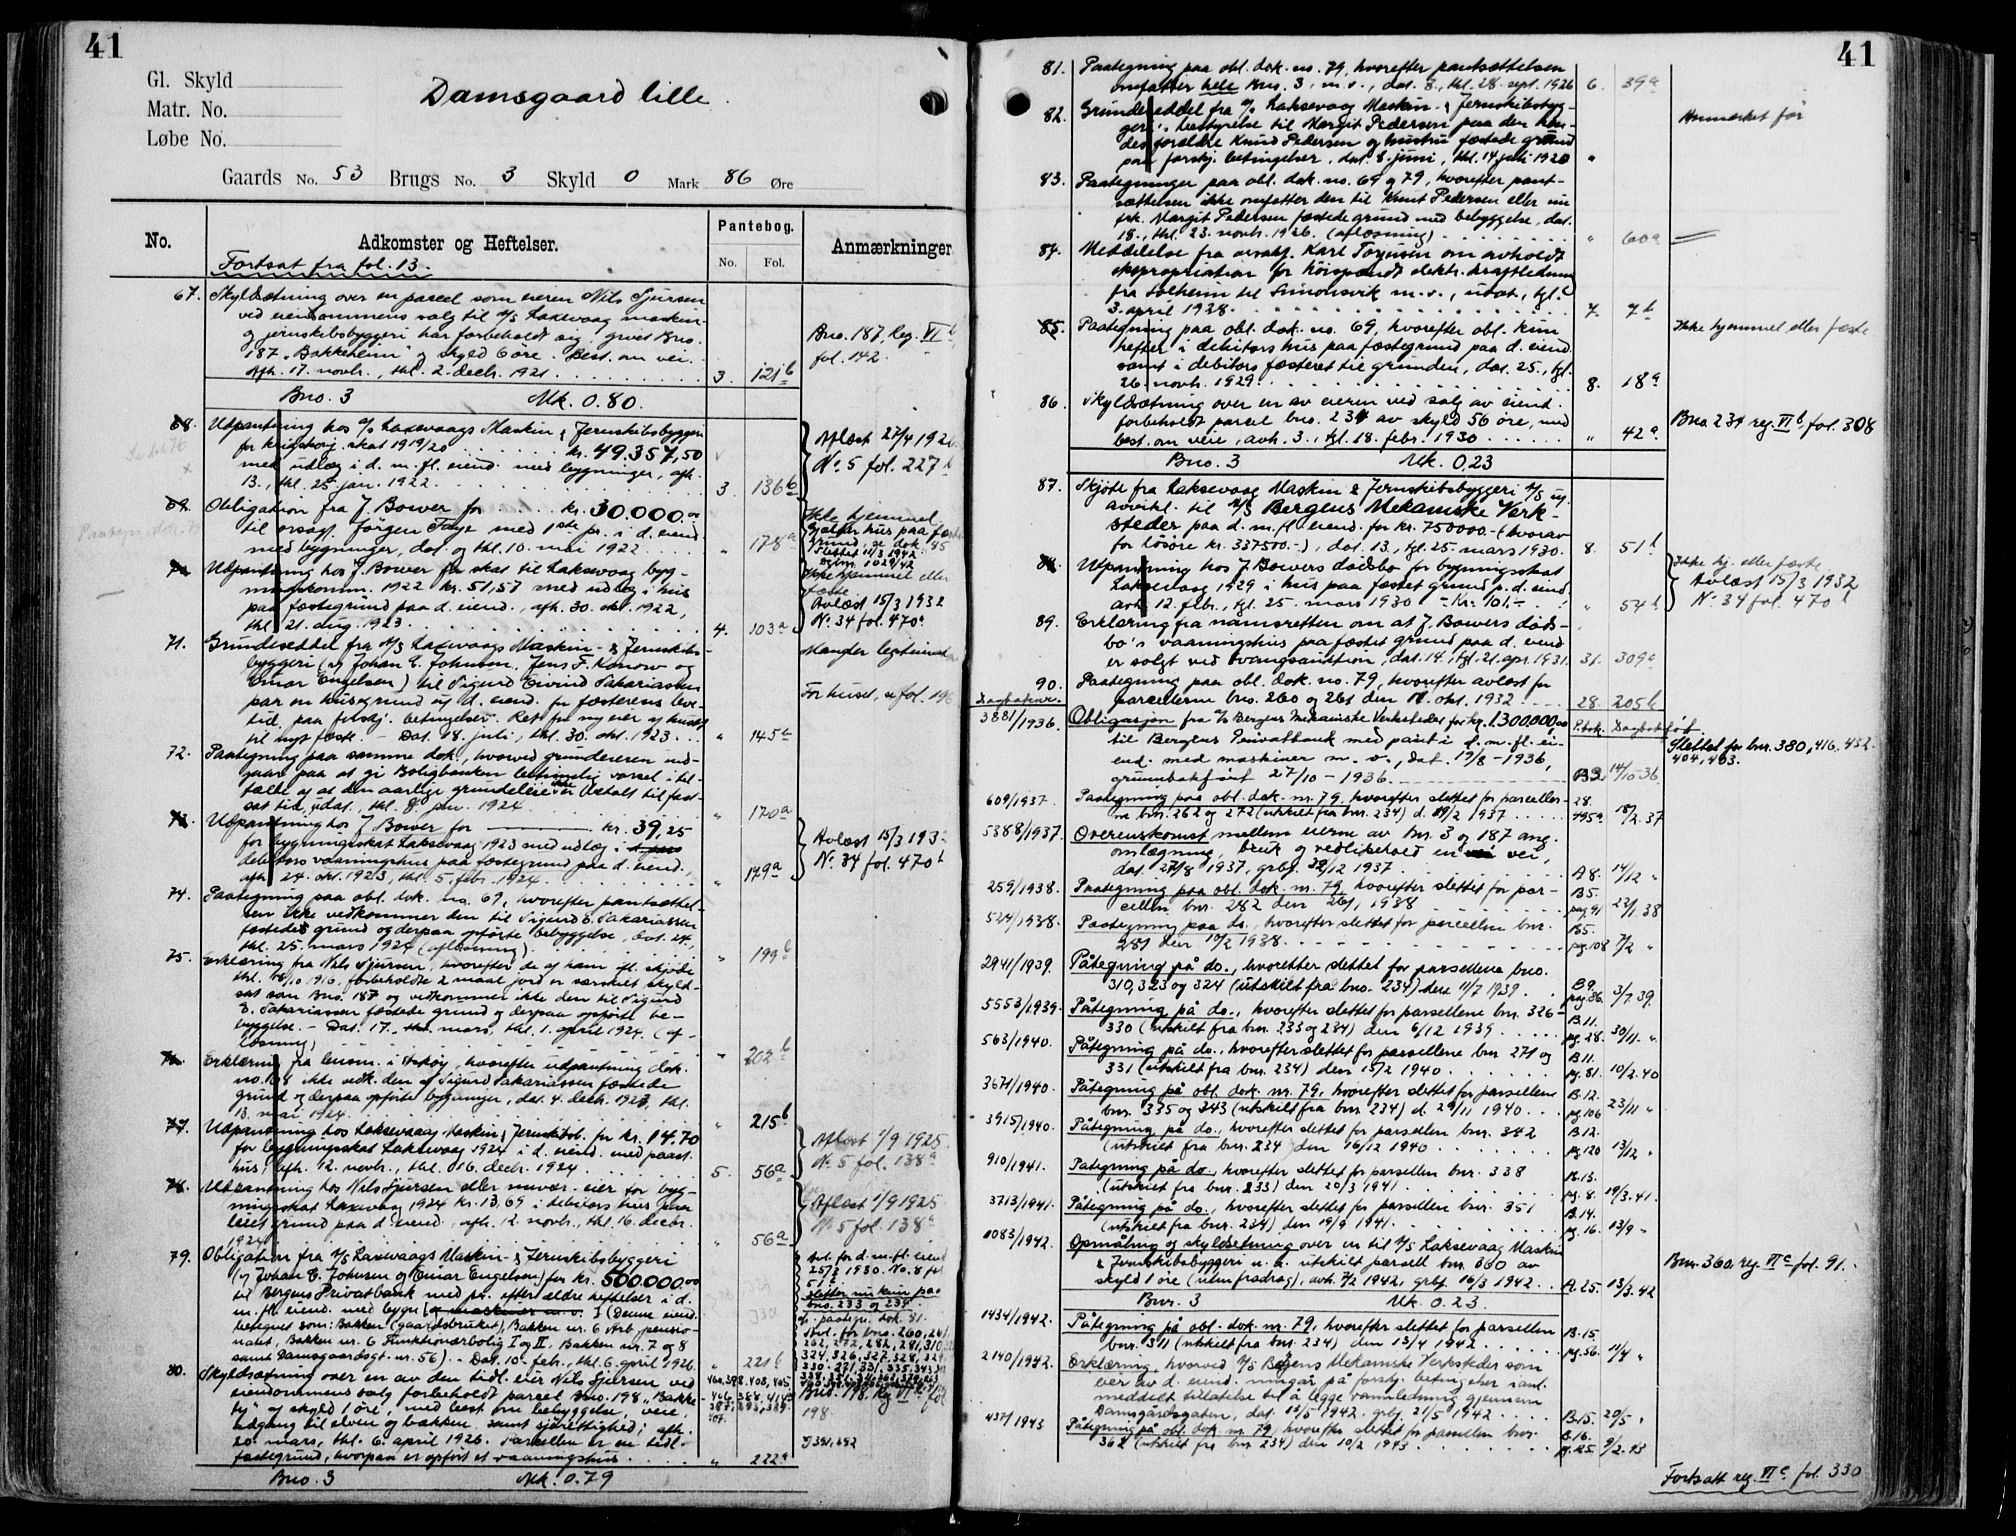 41
Gl. Skyld
Matr. No.
Løbe No.
Damsgaard lille.
Gaards No. 53 Brugs No. 3 Skyld 0 Mark 86 Øre
No.
Adkomster og Heftelser.
Pantebog.
No. Fol.
Anmærkninger
Fortsat fra fol. 13.
67. Skyldsætning over en parcel som eieren Nils Sjursen
ved eiendommens salg til A/S Laxevaag maskin-
og jernskibsbyggeri har forbeholdt sig, givet Bno.
187 „Bakkeheim" og skyld 6 øre. Best. om vei.
Afh. 17. novbr., thl. 2. decbr. 1921. 3. 121 b
Bno. 187 Reg. VI b
fol. 142.
Bno. 3 Mk. 0.80.
68. Udpantning hos A/S Laxevaags Maskin & Jernskibsbyggeri
for krigskonj. skat 1919/20 kr. 49.357,50
med udlæg i d. m. fl. eiend. med bygninger, afh.
13., thl. 25. jan. 1922. 3. 136 b
Avlæst 27/4 192
No. 5 fol. 227
69. Obligation fra J. Bower for kr. 30.000.00
til orsagf. Jörgen Faye med 1ste pr. i d. eiend.
med bygninger, dat. og thl. 10. mai 1922. " 178 a
Ikke hjemmel
Gjælder hus paa
grund, se dok. 85
Slettet 11/3 1942
dagbnr. 1029/42
70. Udpantning hos J. Bower for skat til Laksevaag byg-
ningskomm. 1922 kr. 51,57 med udlæg i hus
paa fæstegrund paa d. eiend., afh. 30. okt. 1922,
thl. 21. aug. 1923. 4. 103 a
Ikke hjemmel eller
fæste
Avlæst 15/3 1932
No. 34 fol. 470
71. Grundeseddel fra A/S Laxevaags Maskin- & Jernskibs-
byggeri (v/ Johan C. Johnsen, Jens F. Konow og
Einar Engelsen) til Sigurd Eivind Sakariassen
paa en husegrund af d. eiend. for fæsterens leve-
tid paa forskj. betingelser. Ret for ny eier af huset
til nyt fæste. - Dat. 18. juli, thl. 30. okt. 1923. " 145 a
Mangler legitimat
For huset, se fol. 196
72. Paategning paa samme dok., hvorved grundeieren ind-
gaar paa at gi Boligbanken betimelig varsel i til-
fælde af at den aarlige grundeleie ikke er betalt til fast-
sat tid, udat., thl. 8. jan. 1924. " 170 a
73. Udpantning hos J. Bower for kr. 39,25
for bygningsskat Laksevaag 1923 med udlæg i
debitors vaaningshus paa fæstegrund paa d. eiend.,
afh. 24. okt. 1923, thl. 5. febr. 1924. " 179 a
Avlæst 15/3 193
No. 34 fol. 470 b
74. Paategning paa obl. dok. no. 69, hvorefter pantsættel-
sen ikke vedkommer den til Sigurd E. Sakariassen
fæstede grund og derpaa opførte bebyggelse, dat.
thl. 25. mars 1924 (aflæsning). " 199 b
75. Erklæring fra Nils Sjursen, hvorefter de af ham ifl. skjöde
thl. 18/10 1916, forbeholdte 2 maal jord er særskilt skyld-
sat som Bno. 187 og vedkommer ikke den til Sigurd
E. Sakariassen fæstede grund og derpaa opførte be-
byggelse. - Dat. 17. mars, thl. 1. april 1924. (af-
læsning) " 202 b
76. Erklæring fra lensm. i Askøy, hvorefter udpantning dok.
no. 68 ikke vedk. den af Sigurd Sakariassen fæstede
grund og derpaa opførte bygninger, dat. 4. decbr. 1923, thl.
13. mai 1924. " 215 b
77. Udpantning hos Laksevaag Maskin & Jernskibsb. for kr. 14.70
for bygningsskat Laksevaag 1924 i d. eiend. med paast.
hus, afh. 12. novbr., thl. 16. decbr. 1924. 5. 56 a
Avlæst 1/9 1925.
No. 5 fol. 138 a
78. Udpantning hos Nils Sjursen eller nuvær. eier for byg-
ningsskat Laxevaag 1924 kr. 13,69 i debitors hus paa
leiet grund paa d. eiend., afh. 12. novbr., thl. 16. decbr.
1924. " 56 a
Avlæst 1/9 1925
No. 5 fol. 138 a
79. Obligation fra A/S Laxevaags Maskin- & Jernskibsbyggeri
(v/ Johan C. Johnsen og Einar Engelsen) for kr. 500.000.00
til Bergens Privatbank med pr. efter eldre heftelser i d.
m. fl. eiend. med bygn. (Denne eiend.
betegnet som: Bakken (gaardsbruket), Bakken nr. 6 Arb. pensio-
natet, Bakken nr. 6 Funktionærbolig I og II, Bakken nr. 7 og 8
samt Damsgaardsgt. nr. 56). - Dat. 10. febr., thl. 6. april 1926. " 221 b
Avl. for d. m. fl. eiend
25/3 1930. No. 8 fol
51 b
Hefter nu kun paa
bno. 233 og 234.
cfr. paategn. dok. 81.
80. Skyldsætning over en av den tidl. eier Nils Sjursen ved
eiendommens salg forbeholdt parcel Bno. 198 „Bakke-
by" af skyld 1 øre, med best. om bebyggelse, veie,
adgang til elven og bækken samt sjørettighed; afh.
20. mars, thl. 6. april 1926. Parcellen er en tidl.
fæstegrund, hvorpaa er opført et vaaningshus. " 222 a
Bno. 198. Reg. VI b fol
198
Bno. 3 Mk. 0.79
41
81. Paategning paa obl. dok. no. 79, hvorefter pantsættelsen
omfatter hele Bno. 3, m. v., dat. 8., thl. 28. sept. 1926 6. 39 a
82. Grundeseddel fra A/S Laksevaag Maskin- & Jernskibsbyg-
geri's bestyrelse til Margit Pedersen paa den hen-
des forældre Knud Pedersen og hustru fæstede grund
paa forskj. betingelser, dat. 8. juni, thl. 14. juli 1920 "
Anmærket før
83. Paategninger paa obl. dok. no. 69 og 79, hvorefter pant-
sættelsen ikke omfatter den til Knut Pedersen eller nu
frk. Margit Pedersen fæstede grund med bebyggelse, dat.
18., thl. 23. novbr. 1926. (aflæsning) " 60 a
84. Meddelelse fra orsakf. Karl Torjusen om avholdt
ekspropriation for höispændt elektr. kraftledning
fra Solheim til Simonsvik m. v., udat., tgl.
3. april 1928. 7. 7 b
85. Paategning paa obl. dok. no. 69, hvorefter obl. kun
hefter i debitors hus paa fæstegrund paa d. eiend.
samt i debitors fæsteret til grunden, dat. 25., tgl.
26. novbr. 1929. 8. 18 a
Ikke hjemmel eller fæste
86. Skyldsætning over en av eieren ved salg av eiend.
forbeholdt parcel bno. 234 av skyld 56 öre, med
best. om veie, avh. 3., tgl. 18. febr. 1930 " 42 a.
Bno. 234 reg. VI b fol. 308
Bno. 3 Mk. 0.23
87. Skjöte fra Laksevaag Maskin & Jernskibsbyggeri A/S u.
avvikl. til A/S Bergens Mekaniske Verk-
steder paa d. m. fl. eiend. for kr. 750000.- (hvorav
for lösöre kr. 337500.-), dat. 13., tgl. 25. mars 1930. 8. 51 b
88. Utpantning hos J. Bowers dödsbo for bygningsskat
Laksevaag 1929 i hus paa fæstet grund p. d. eiend.
avh. 12. febr., tgl. 25. mars 1930 - Kr. 101.- " 54 b
Ikke hj. eller fæste
Avlæst 15/3 1932
No. 34 fol. 470 b
89. Erklæring fra namsretten om at J. Bowers döds-
bo's vaaningshus paa fæstet grund paa d. eiend
er solgt ved tvangsauktion, dat. 14., tgl. 21. apr. 1931. 31. 309 a
90. Paategning paa obl. dok. no. 79, hvorefter avlæst for
parcellerne bno. 260 og 261 den 11. okt. 1932 28. 205 b
Dagboknr.
3881/1936. Obligasjon fra A/S Bergens Mekaniske Verksteder for kr. 1.300.000,00
til Bergens Privatbank med pant i d. m. fl. ei-
end. med maskiner m. v., dat. 19/8 - 1936,
grunnbokført 27/10 - 1936. B3. 14/10-36
P.bok. Dagbokført
Slettet for bnr. 380, 416, 432.
404, 403.
609/1937. Paategning paa obl. dok. nr. 79, hvorefter slettet for parceller-
ne bnr. 262 og 272 (utskilt fra bnr. 234) d. 19/2 1937 28. 495 a 18/2.37
5388/1937. Overenskomst mellem eierne av bnr. 3 og 187 ang.
omlægning, bruk og vedlikehold en vei,
dat. 27/8 1937, grbf. 22/12 1937 A 8. 14/12 "
259/1938. Paategning paa obl. dok. nr. 79, hvorefter slettet for par-
cellen bnr. 282 den 26/1 1938 B5. pag 91 22/1.38
524/1938. Paategning paa do., hvorefter slettet for parcellen bnr.
281 den 10/2 1938. B5. pg. 108 7/2 "
2941/1939. Påtegning på do., hvoretter slettet for parsellene bno.
310, 323 og 324 (utskilt fra bno. 234) den 11/7 1939. B9. pag. 86. 3/7.39.
5553/1939. Påtegning på do., hvorefter slettet for parsellene bnr. 326-
330 (utskilt fra bnr. 233 og 234) den 6/12 1939 B.11. pg. 28. 30/11. "
563/1940. Påtegning på do., hvorefter slettet for parsellene bnr 271 og
331 (utskilt fra bnr. 234) den 15/2 1940 B.11. pg. 81. 10/2.40
3671/1940. Påtegning på obl. dok. nr. 79, hvorefter slettet for parsellene
bnr. 335 og 343 (utskilt fra bnr 234) d. 29/11 1940. B.12. pg 106 23/11 "
3915/1940. Påtegning på do., hvorefter slettet for parsellen bnr. 342
(utskilt fra bnr. 234) den 16/12 1940 B.12. pg 120 13/12 "
910/1941. Påtegning på do., hvorefter slettet for parsellen bnr. 338
(utskilt fra bnr. 233) den 20/3 1941. B.13. pg. 8. 19/3.41.
3713/1941. Påtegning på do., hvorefter slettet for parsellen bnr. 351
(utskilt fra bnr. 234) den 19/9 1941. B.14. pg. 16. 13/9 "
1083/1942. Opmåling og skyldsetning over en til A/S Laksevaag Maskin
& Jernskibsbyggeri u. a. utskilt parsell bnr. 360 av
skyld 1 øre (uten fradrag), avh. 7/2 1942, grbf. 16/3 1942. A.25. 13/3.42
Bnr. 360 reg. VI c fol. 91.
Bnr. 3 Mk. 0.23.
1434/1942. Påtegning på obl. dok. nr. 79, hvorefter slettet for parsellen
bnr. 311 (utskilt fra bnr. 234) den 13/4 1942 B.15. pg. 56. 11/4 "
2140/1942. Erklæring hvorved A/S Bergens Mekaniske Verksteder som
eier av d. eiend. inngår på forskj. betingelser saml.
meddelt tillatelse til å legge vannledning gjennem
Damsgårdsgaten, dat. 12/5 1942. grbf. 21/5 1942 B.15. 20/5 "
437/1943 Påtegning på obl. dok. nr. 79, hvorefter slettet for parsellen bnr.
362 (utskilt fra bnr 234) den 10/2 1943 B.16. pg. 125. 9/2.43
Fortsatt reg. VI c fol. 330